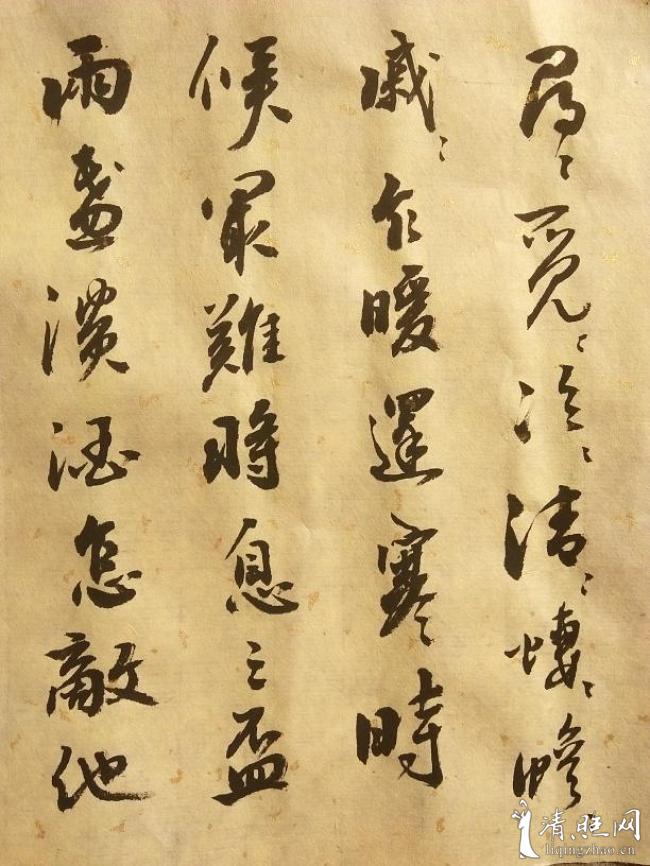 尋々覓々冷々清々悽々慘々
戚々乍暖還寒時
候最難將息三盃
兩盞淡酒怎敵他
清旺网
liqingzhao.cn